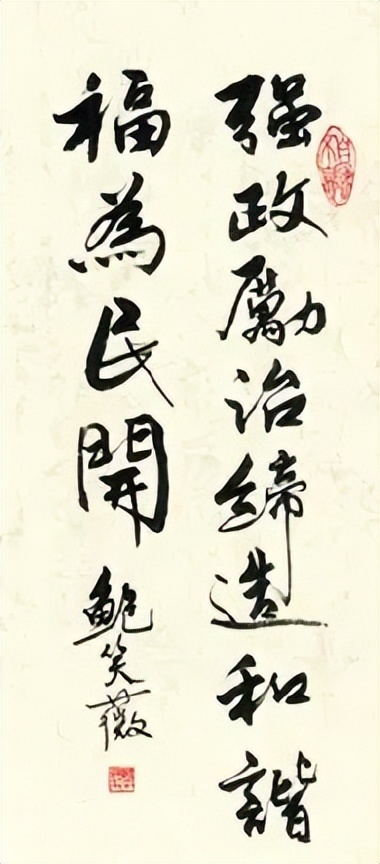 强政勵治締造和諧
福為民開
鲍笑薇